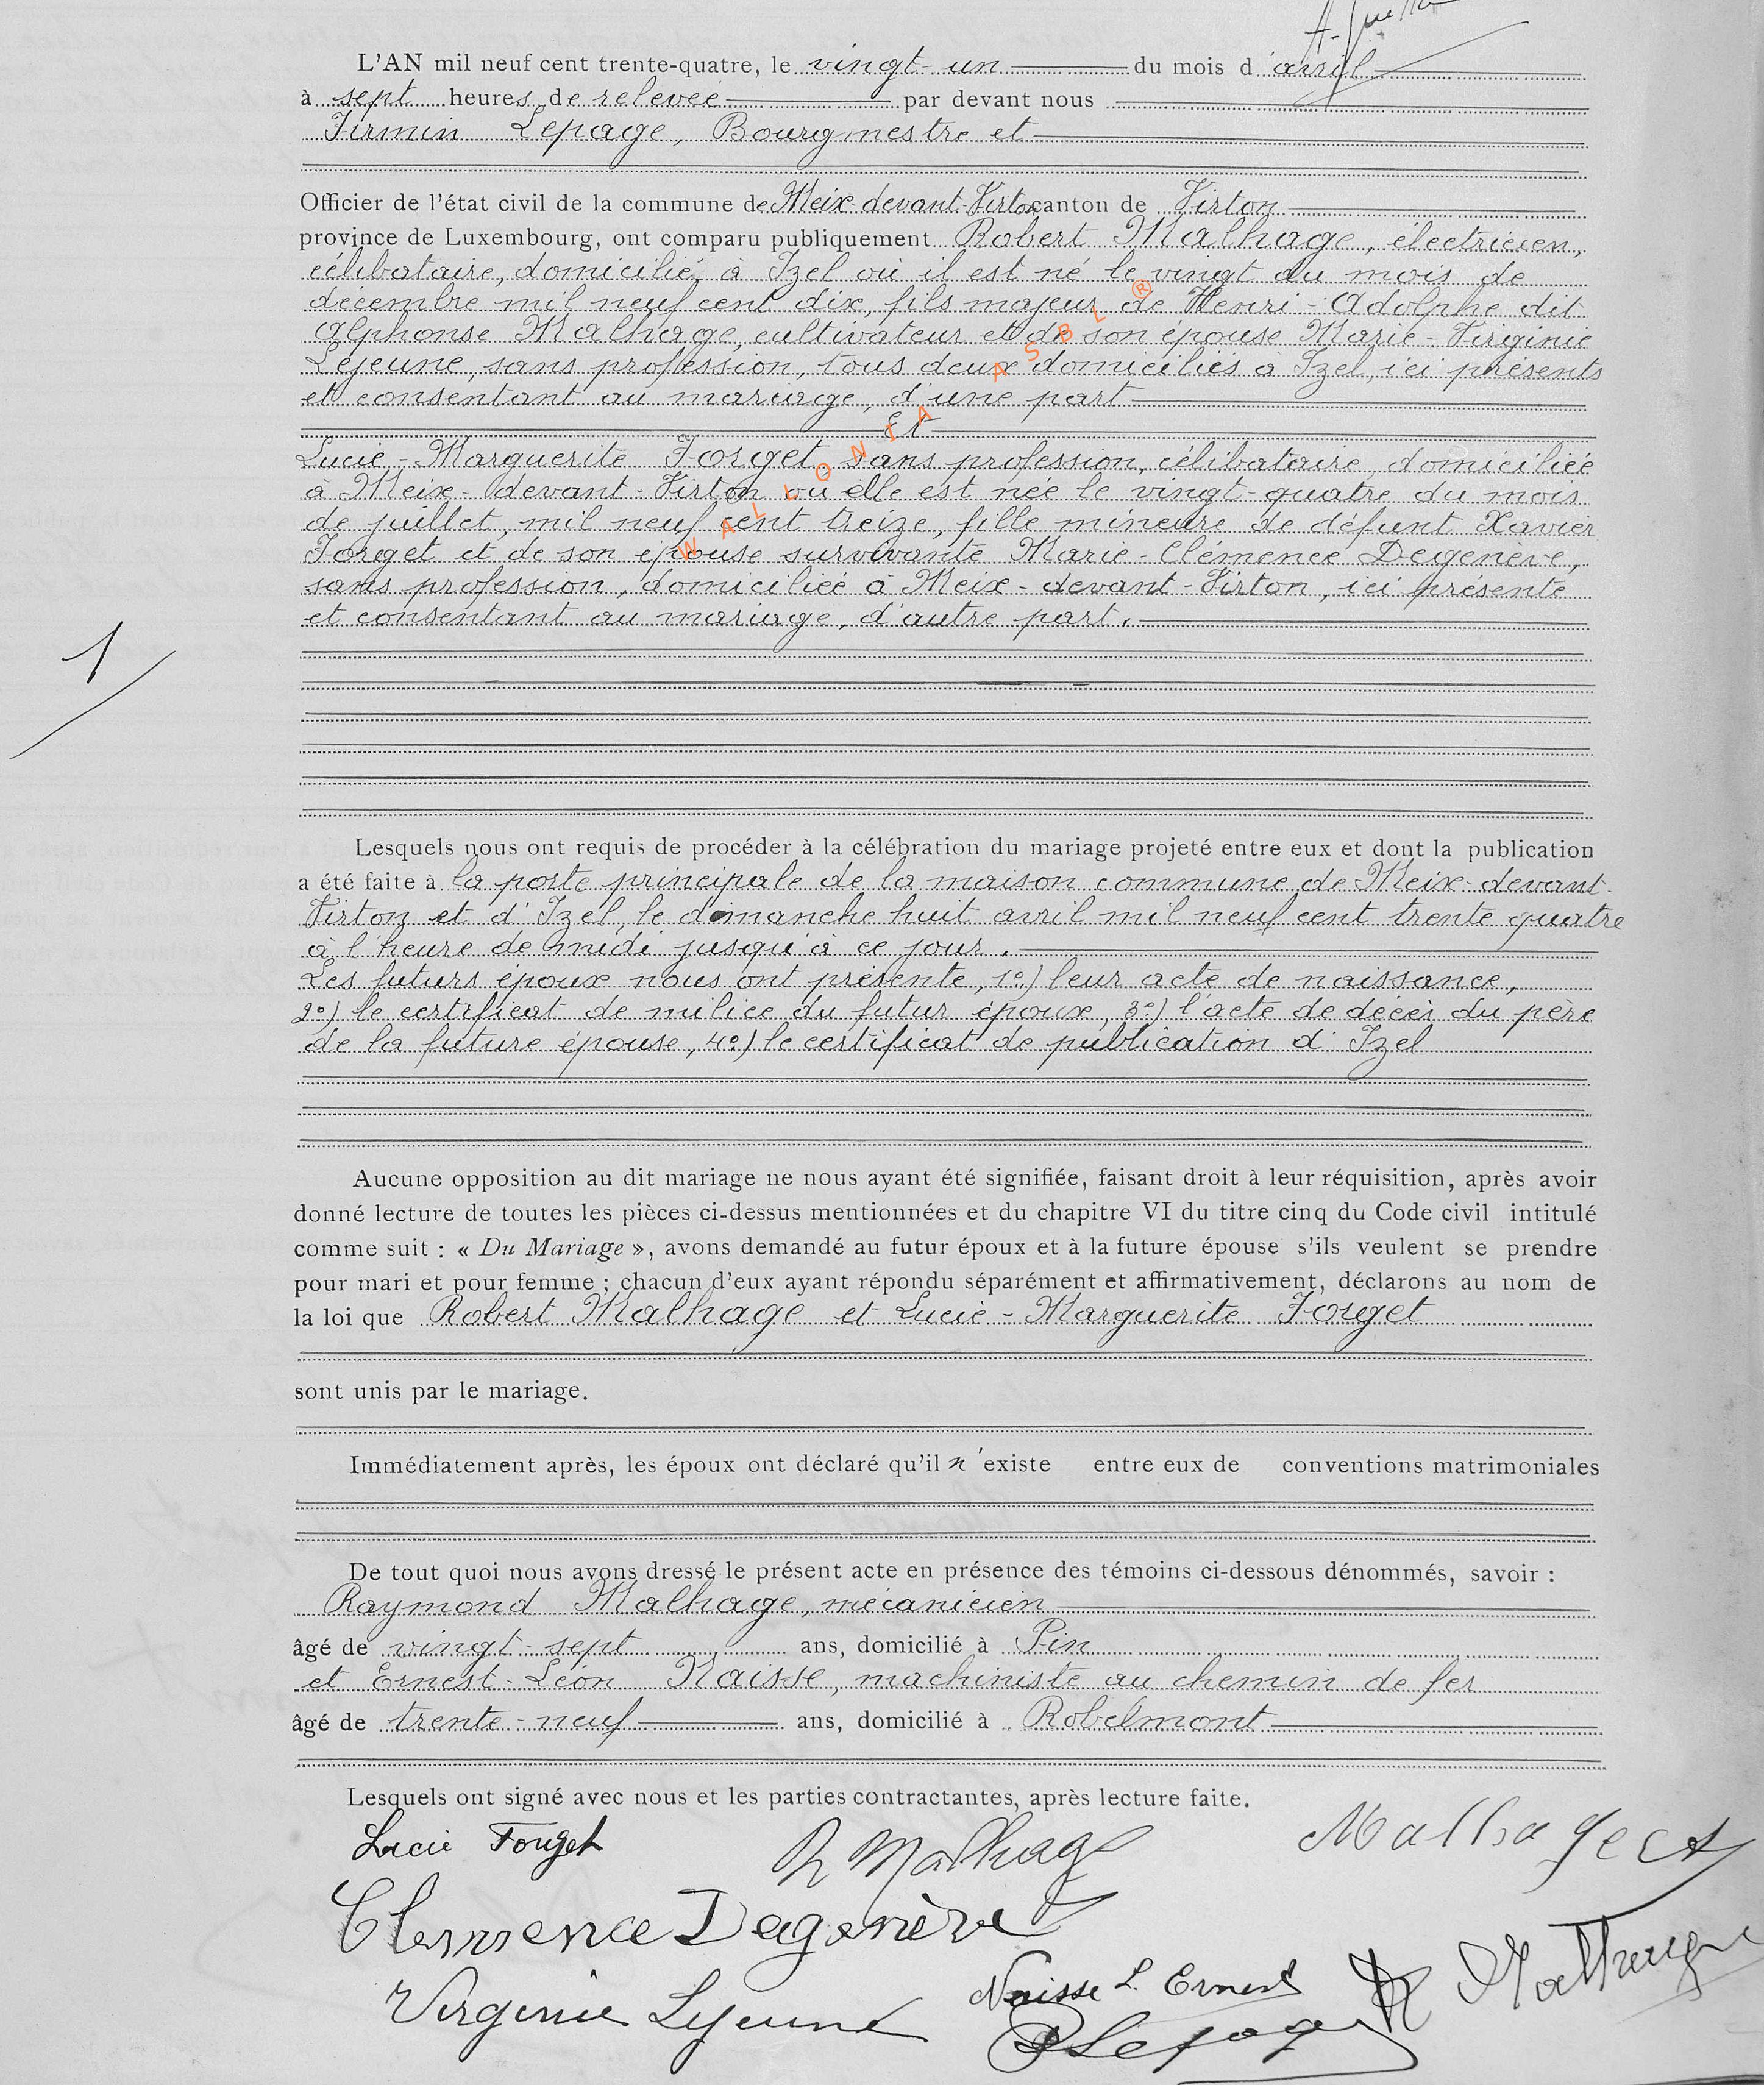 L'AN mil neuf cent trente-quatre, le vingt-un du mois d'avril
à sept heures de relevée par devant nous
Firmin Lepage, Bourgmestre et
Officier de l'état civil de la commune de Meix-devant-Virton canton de Virton
province de Luxembourg, ont comparu publiquement Robert Malhage, électricien,
célibataire, domicilié à Izel où il est né le vingt du mois de
décembre mil neuf cent dix, fils majeur de Henri-Adolphe dit
Alphonse Malhage, cultivateur et de son épouse Marie-Virginie
Lejeune, sans profession, tous deux domiciliés à Izel, ici présents
et consentant au mariage, d'une part
Et
Lucie-Marguerite Forget, sans profession, célibataire, domiciliée
à Meix-devant-Virton où elle est née le vingt-quatre du mois
de juillet, mil neuf cent treize, fille mineure de défunt Xavier
Forget et de son épouse survivante Marie-Clémence Degenève,
sans profession, domiciliée à Meix-devant-Virton, ici présente
et consentant au mariage, d'autre part.
WALLONIA ASBL ®
1
Lesquels nous ont requis de procéder à la célébration du mariage projeté entre eux et dont la publication
a été faite à la porte principale de la maison commune de Meix-devant-
Virton et d'Izel, le dimanche huit avril mil neuf cent trente quatre
à l'heure de midi jusqu'à ce jour.
Les futurs époux nous ont présenté, 1º) leur acte de naissance,
2º) le certificat de milice du futur époux, 3º) l'acte de décès du père
de la future épouse, 4º) le certificat de publication d'Izel
Aucune opposition au dit mariage ne nous ayant été signifiée, faisant droit à leur réquisition, après avoir
donné lecture de toutes les pièces ci-dessus mentionnées et du chapitre VI du titre cinq du Code civil intitulé
comme suit : « Du Mariage », avons demandé au futur époux et à la future épouse s'ils veulent se prendre
pour mari et pour femme ; chacun d'eux ayant répondu séparément et affirmativement, déclarons au nom de
la loi que Robert Malhage et Lucie-Marguerite Forget
sont unis par le mariage.
Immédiatement après, les époux ont déclaré qu'il n'existe entre eux de conventions matrimoniales
De tout quoi nous avons dressé le présent acte en présence des témoins ci-dessous dénommés, savoir :
Raymond Malhage, mécanicien
âgé de vingt-sept ans, domicilié à Pin
et Ernest-Léon Naisse, machiniste au chemin de fer
âgé de trente-neuf ans, domicilié à Robelmont
Lesquels ont signé avec nous et les parties contractantes, après lecture faite.
Lucie Forget R Malhage Malhage
Clemence Degenève
Virginie Lejeune Naisse L. Ernest R Malhage
Lepage